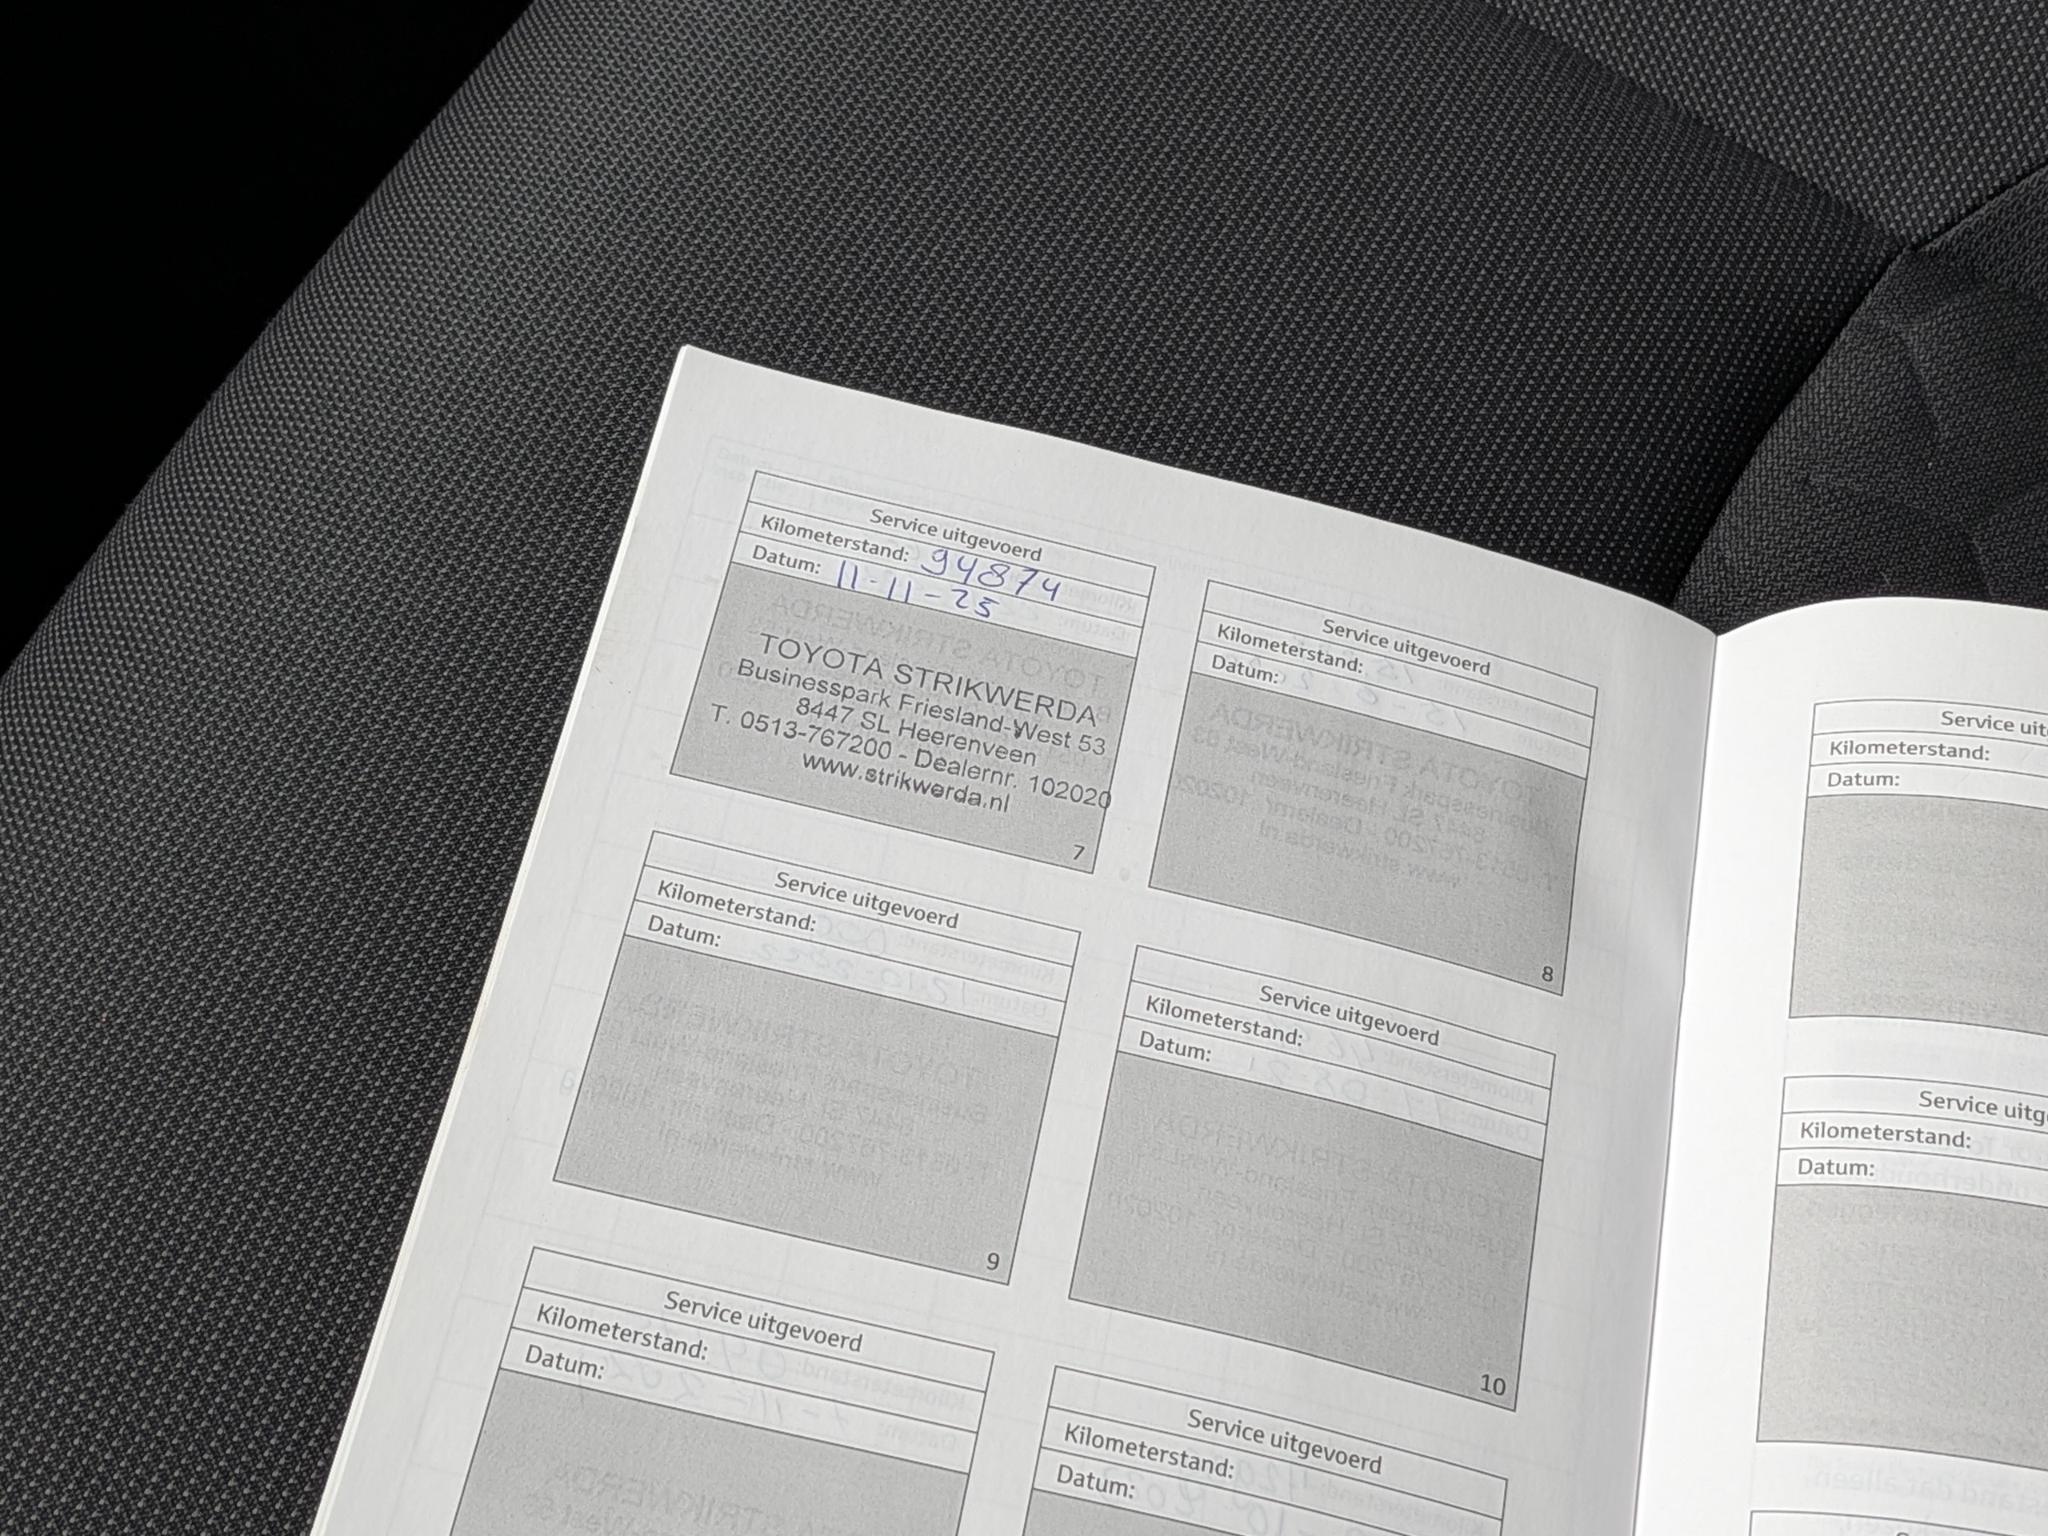 Service uitgevoerd
Kilometerstand: 94874
Datum: 11-11-25
TOYOTA STRIKWERDA
Businesspark Friesland-West 53
8447 SL Heerenveen
T. 0513-767200 - Dealernr. 102020
www.strikwerda.nl
7
Service uitgevoerd
Kilometerstand:
Datum:
8
Service uitgevoerd
Kilometerstand:
Datum:
9
Service uitgevoerd
Kilometerstand:
Datum:
10
Service uitgevoerd
Kilometerstand:
Datum:
Service uitgevoerd
Kilometerstand:
Datum:
Service
Kilometerstand:
Datum:
Service
Kilometerstand:
Datum: